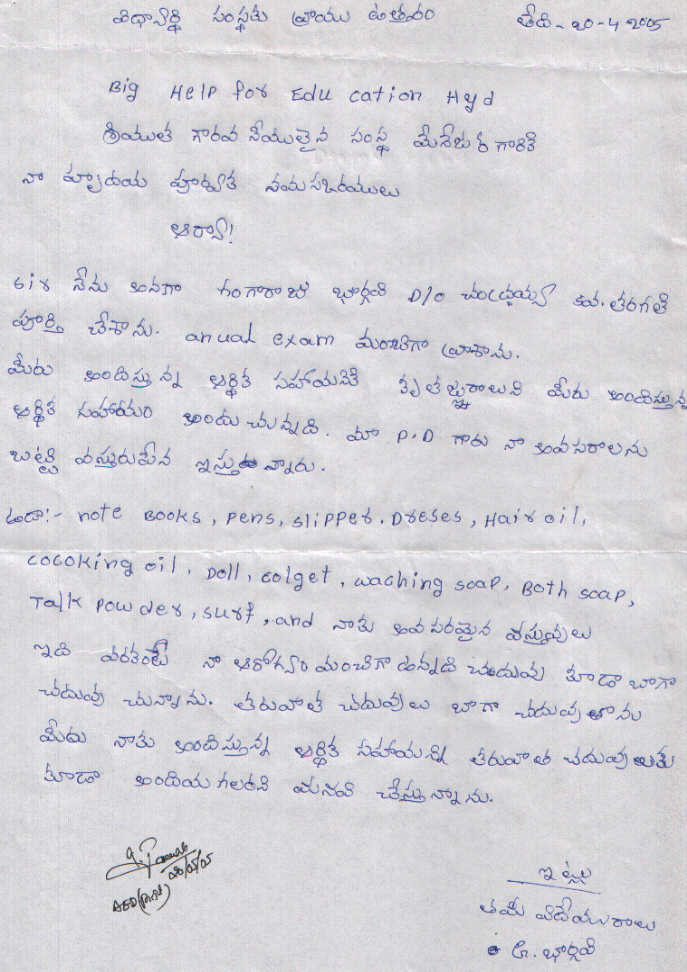 విద్యార్థి సంస్థకు వ్రాయు ఉత్తరం తేది - 20-4-2005
Big Help for Edu cation Hyd
శ్రీయుత గౌరవ నీయులైన సంస్థ మేనేజర్ గారికి
నా హృదయ పూర్వక నమస్కారములు
ఆర్యా!
Sir నేను అనగా గంగారాజు భార్గవి D/o చంద్రయ్య 10వ. తరగతి
పూర్తి చేశాను. anual exam మంచిగా వ్రాశాను.
మీరు అందిస్తు న్న ఆర్థిక సహాయనికి కృతజ్ఞురాలుని మీరు అందిస్తున్న
ఆర్థిక సహాయం అందు చున్నది. మా P.D గారు నా అవసరాలను
బట్టి వస్తురుపేన ఇస్తు న్నారు.
ఉదా:- note Books, pens, slipper. Dreses, Hair oil,
cocoking oil, Doll, colget, waching soap, Both soap,
Talk pow der, surf, and నాకు అవసరమైన వస్తువులు
ఇది వరకంటే నా ఆరోగ్యం మంచిగా ఉన్నది చదువు కూడా బాగా
చదువు చున్నాను. తరువాత చదువులు బాగా చదువుతాను
మీరు నాకు అందిస్తున్న ఆర్థిక సహాయన్ని తరువాత చదువులకు
కూడా అందియగలరని మనవి చేస్తున్నాను.
ఇట్లు
తమ విదేయురాలు
G. భార్గవి